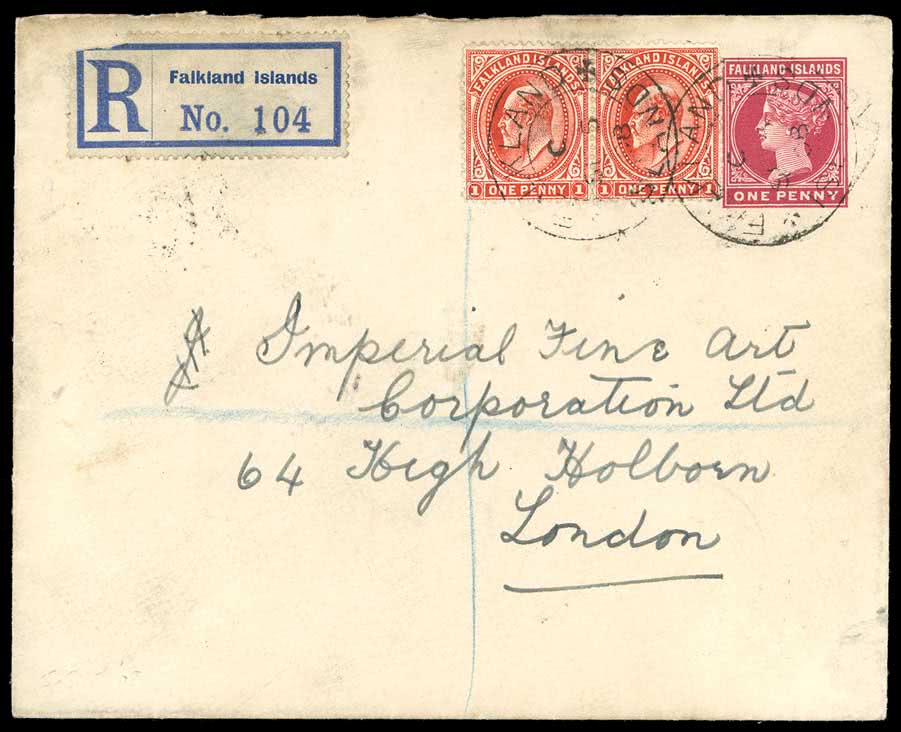 R Falkland Islands
No. 104
FALKLAND ISLANDS
1 ONE PENNY 1
FALKLAND ISLANDS
1 ONE PENNY 1
FALKLAND ISLANDS
ONE PENNY
Imperial Fine Art
Corporation Ltd
64 High Holborn
London